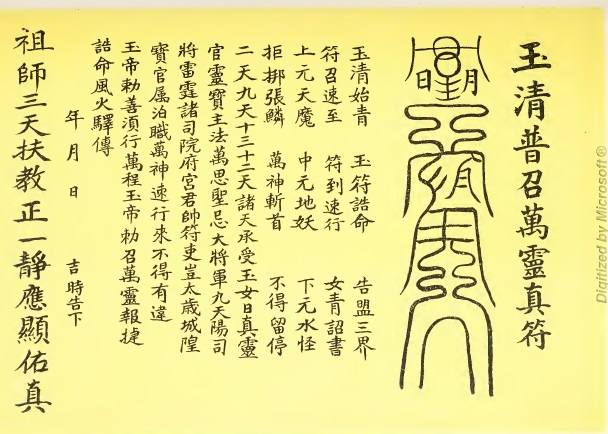 玉清普召萬靈真符
日月
玉清始青　玉符誥命　告盟三界
符召速至　符到速行　女青詔書
上元天魔　中元地妖　下元水怪
拒捓張鱗　萬神斬首　不得留停
二天九天十三十二天諸天承受玉女日真靈
官靈寶主法萬思聖忌大將軍九天陽司
將雷霆諸司院府宮君帥符吏豈太歲城隍
寶官属泊職萬神速行來不得有違
玉帝勅善須行萬程玉帝勅召萬靈報捷
誥命風火驛傳
年　月　日　吉時告下
祖師三天扶教正一靜應顯佑真
Digitized by Microsoft®